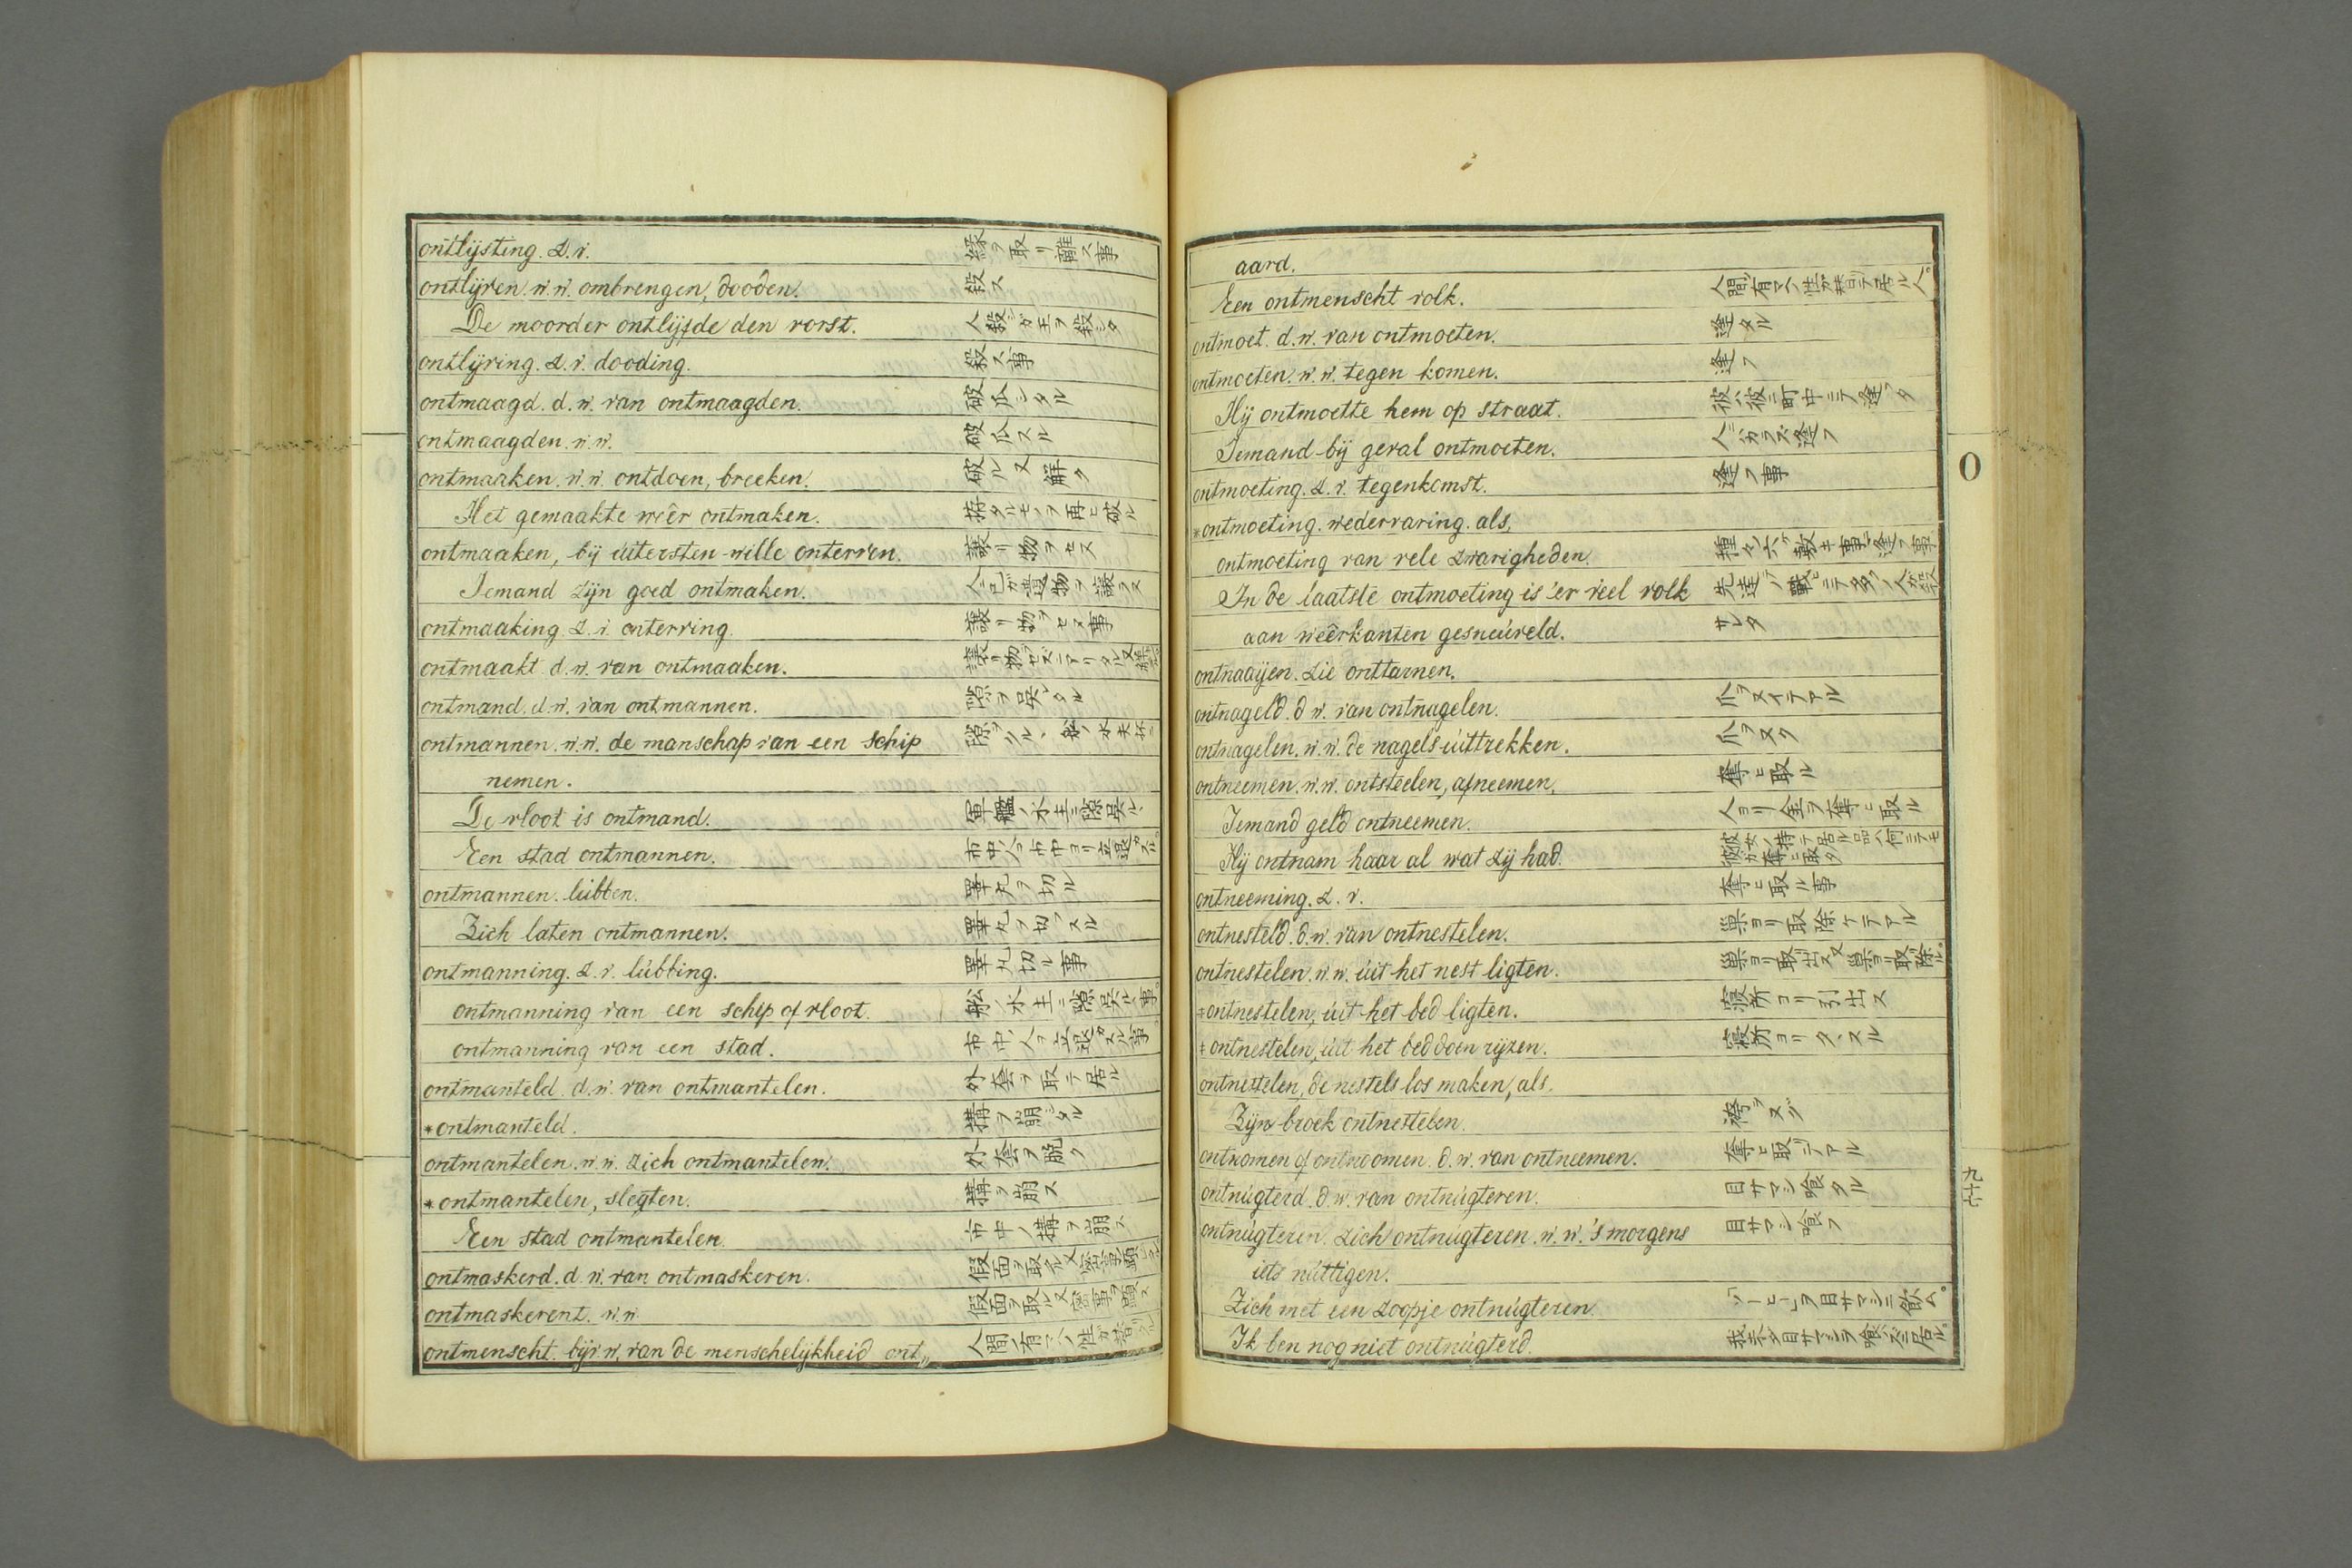 ontlysting. z. v. 縁ヲ取リ離ス事
ontlyven. w. w. ombrengen, dooden. 殺ス
De moorder ontlyfde den vorst. 人殺ガ王ヲ殺シタ
ontlyving. z. v. dooding. 殺ス事
ontmaagd. d. w. van ontmaagden. 破瓜シタル
ontmaagden. w. w. 破瓜スル
ontmaaken. w. w. ontdoen, breeken. 破ル又解ク
Het gemaakte weêr ontmaken. 拵タルモノヲ再ヒ破ル
ontmaaken, bij úitersten wille onterven. 譲リ物ヲセヌ
Iemand zijn goed ontmaken.
ontmaaking. z. v. onterving. 譲リ物ヲセヌ事
ontmaakt. d. w. van ontmaaken.
ontmand. d. w. van ontmannen.
ontmannen. w. w. de manschap van een schip
nemen.
De vloot is ontmand.
Een stad ontmannen.
ontmannen. lúbben. 睪丸ヲ切ル
Zich laten ontmannen.
ontmanning. z. v. lúbbing. 睪丸切ル事
ontmanning van een schip of vloot.
ontmanning van een stad.
ontmanteld. d. w. van ontmantelen. 外套ヲ取テ居ル
*ontmanteld. 構ヲ崩シタル
ontmantelen. w. w. zich ontmantelen. 外套ヲ脱ク
*ontmantelen, slegten. 構ヲ崩ス
Een stad ontmantelen. 市中ノ構ヲ崩ス
ontmaskerd. d. w. van ontmaskeren.
ontmaskerent. w. w. 假面ヲ取ル又密事ヲ顕ス
ontmenscht. bijv. w. van de menschelykheid ont„
aard.
Een ontmenscht volk.
ontmoet. d. w. van ontmoeten. 逢タル
ontmoeten. w. w. tegen komen. 逢フ
Hij ontmoette hem op straat. 彼ハ彼ニ町中ニテ逢フタ
Iemand bij geval ontmoeten.
ontmoeting. z. v. tegenkomst. 逢フ事
*ontmoeting. wedervaring. als,
ontmoeting van vele zwarigheden. 種々六ヶ敷キ事ニ逢フ事
In de laatste ontmoeting is 'er veel volk
aan weêrkanten gesneúveld. サレタ
ontnaaijen. zie onttarnen.
ontnageld. d. w. van ontnagelen. 爪ヲヌイテアル
ontnagelen. w. w. de nagels úittrekken. 爪ヲヌク
ontneemen. w. w. ontsteelen, afneemen. 奪ヒ取ル
Iemand geld ontneemen. 人ヨリ金ヲ奪ヒ取ル
Hij ontnam haar al wat zij had. 彼女ノ持テ居ル品ハ何ニテモ彼ガ奪ヒ取タ
ontneeming. z. v. 奪ヒ取ル事
ontnesteld. d. w. van ontnestelen. 巣ヨリ取除ケテアル
ontnestelen. w. w. úit het nest ligten. 巣ヨリ取出ス又巣ヨリ取除ル
‡ontnestelen, úit het bed ligten. 寝所ヨリ引出ス
‡ontnestelen, úit het bed doen rijzen. 寝所ヨリタヽスル
ontnestelen, de nestels los maken, als.
Zijn broek ontnestelen. 袴ヲヌグ
ontnomen of ontnoomen. d. w. van ontneemen. 奪ヒ取テアル
ontnúgterd. d. w. van ontnúgteren. 目サマシ喰タル
ontnúgteren. zich ontnúgteren. w. w. 's morgens 目サマシ喰フ
iets núttigen.
Zich met een zoopje ontnúgteren.
Ik ben nog niet ontnúgterd.
O
九十七